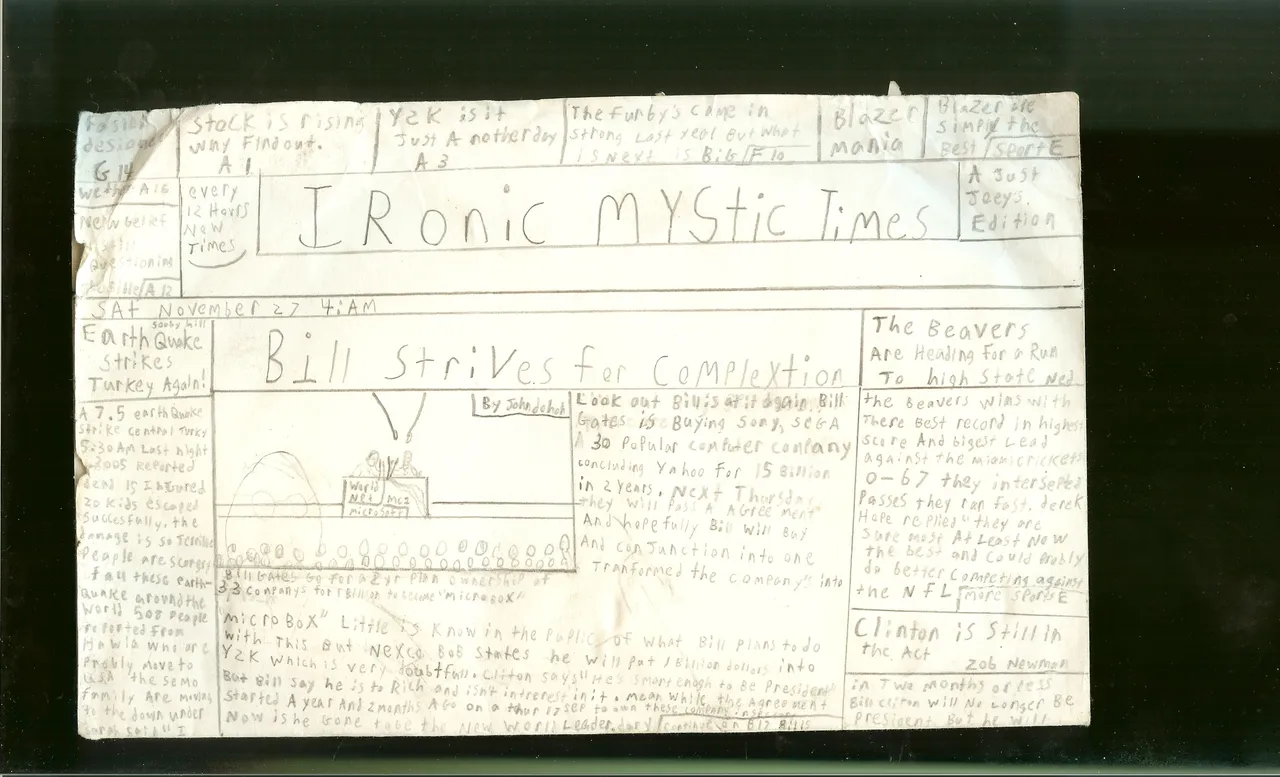 Fasion
designe
G 14
Stock is rising
Why Find out.
A 1
Y2K is it
Just A notherday
A 3
The Furby's came in
strong Last year But What
is Next is BiG /F 10
Blazer
mania
Blazer are
simply the
Best /SportE
weather A16
New belief
Questioning
A 12
every
12 Hours
New
Times
IRonic MYStic Times
A Just
Joeys.
Edition
SAt November 27 4:AM
Earth Quake
Strikes
Turkey Again!
A 7.5 earth Quake
Strike central Turky
5:30 Am Last night
2005 Reported
dead 15 Injured
20 Kids escaped
Successfully, the
damage is so Terrible
People are
of all these earth-
Quake around the
World 508 People
reported from
who are
Prebly Move to
U.S.A the Semo
family Are moving
to the down under
Bill Strives for Complextion
By John
World
Net Mci
microsoft
Bill Gates Go for a 2 yr plan ownership of
33 companys for 1 Billion to become "MicroBOX"
Look out Bill is at it again. Bill
Gates is Buying Sony, SEGA
A 30 Popular computer company
concluding Yahoo For 15 Billion
in 2 years. Next Thursday
they will Pass A "Agreement"
And hopefully Bill will Buy
And conJunction into one
Tranformed the company's into
MicroBoX" Little is Know in the Public of What Bill Plans to do
with This But Nexco BoB states he will Put 1 Billion dollors into
Y2K which is very doubtfull. Clitton says "He's smart enogh to Be President"
But Bill say he is to Rich and isn't intrerest in it. mean while the Agreement
Started A year And 2 months Ago on a thur 17 SEP to own these company
Now is he Gone take the New World Leader. /continue on B12 Bills
The Beavers
Are Heading For a Run
To high State Ned.
the Beavers wins with
There Best record in highest
score And bigest Lead
against the miami crickets
0-67 they intersepted
Passes they ran fast. derek
Hope replied "they are
Sure most At Least Now
the best and could Prebly
do better Competing against
the NFL /more SportsE
Clinton is Still in
the Act
Zob Newman
in Two months or less
Bill Clitton will No Longer Be
President. But he will